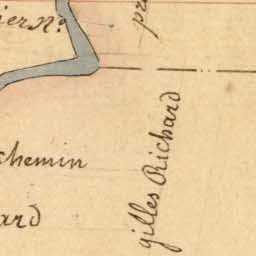 ier n.o
pr
chemin
ard
gilles Richard